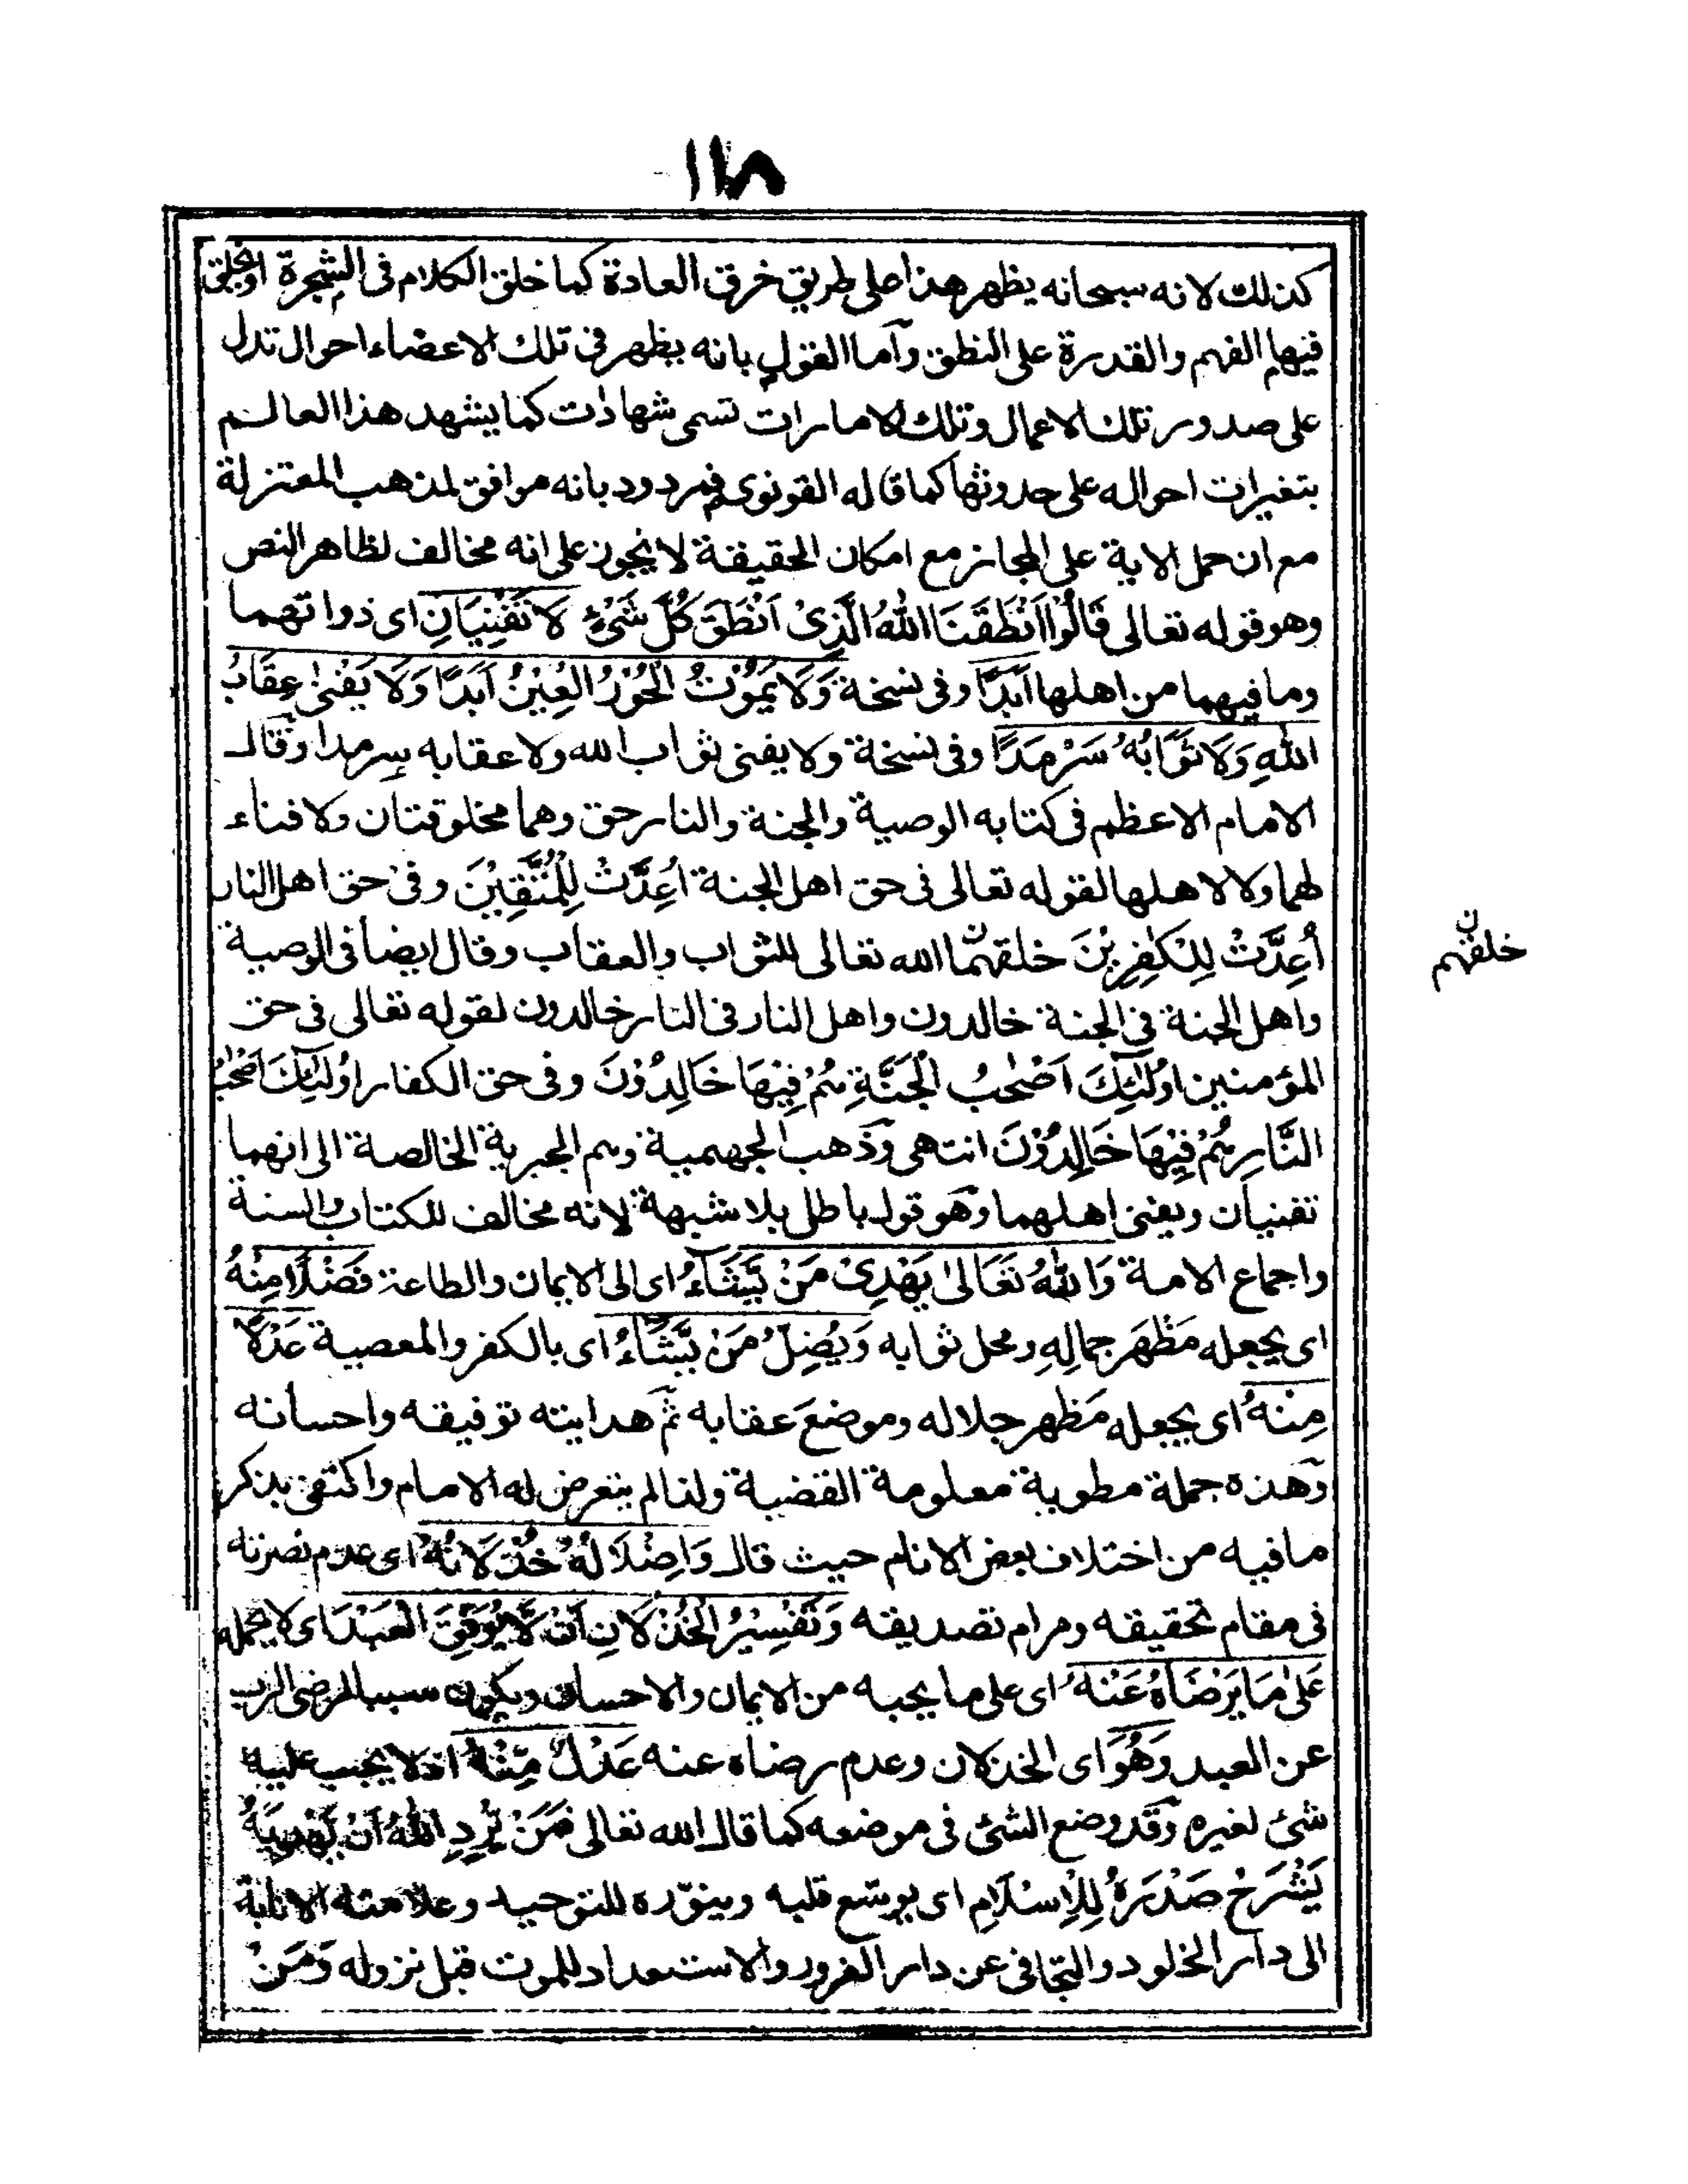 ١١٨
كذلك لانه سبحانه يظهر هذا على طريق خرق العادة كما خلق الكلام فى الشجرة او يخلق
فيها الفهم والقدرة على النطق وآما القول بانه يظهر فى تلك الاعضاء احوال تدل
على صدور تلك الاعمال وتلك الامارات تسمى شهادات كما يشهد هذا العالم
بتغيرات احواله على حدوثها كما قاله القونوى فمردود بانه موافق لمذهب المعتزلة
مع ان حمل الاية على المجاز مع امكان الحقيقة لا يجوز على انه مخالف لظاهر النص
وهو قوله تعالى قَالُوْا اَنْطَقَنَا اللهُ الَّذِىْ اَنْطَقَ كُلَّ شَىْءٍ لَا تَفْنِيَانِ اى ذواتهما
وما فيهما من اهلها اَبَدًا وفى نسخة وَلَا يَمُوْتُ الْحُوْرُ الْعِيْنُ اَبَدًا وَلَا يَفْنٰى عِقَابُ
اللهِ وَلَا ثَوَابُهٗ سَرْمَدًا وفى نسخة ولا يفنى ثواب الله ولا عقابه سرمدا وقال
الامام الاعظم فى كتابه الوصية والجنة والنار حق وهما مخلوقتان ولا فناء
لهما ولا لاهلها لقوله تعالى فى حق اهل الجنة اُعِدَّتْ لِلْمُتَّقِيْنَ وفى حق اهل النار
اُعِدَّتْ لِلْكٰفِرِيْنَ خلقهماۨ الله تعالى للثواب والعقاب وقال ايضا فى الوصية
ن خلقهم
واهل الجنة فى الجنة خالدون واهل النار فى النار خالدون لقوله تعالى فى حق
المؤمنين اُولٰٓئِكَ اَصْحٰبُ الْجَنَّةِ هُمْ فِيْهَا خَالِدُوْنَ وفى حق الكفار اُولٰٓئِكَ اَصْحٰبُ
النَّارِ هُمْ فِيْهَا خَالِدُوْنَ انتهى وذهب الجهمية وهم الجبرية الخالصة الى انهما
تفنيان ويفنى اهلهما وهو قول باطل بلا شبهة لانه مخالف للكتاب والسنة
واجماع الامة وَاللهُ تَعَالىٰ يَهْدِىْ مَنْ يَّشَآءُ اى الى الايمان والطاعة فَضْلًا مِنْهُ
اى يجعله مَظْهَر جمالِهِ ومحل ثوابه وَيُضِلُّ مَنْ يَّشَآءُ اى بالكفر والمعصية عَدْلًا
مِنْهُ اى يجعله مَظهر جلاله وموضعَ عقابه ثم هدايته توفيقه واحسانه
وهذه جملة مطوية معلومة القضية ولذا لم يتعرض له الامام واكتفى بذكر
ما فيه من اختلاف بعض الانام حيث قال وَاِضْلَالُهٗ خُذْلَانُهٗ اى عدم نصرته
فى مقام تحقيقه ومرام تصديقه وَتَفْسِيْرُ الْخُذْلَانِ اَنْ لَّا يُوَفِّقَ الْعَبْدَ اى لا يحمله
عَلىٰ مَا يَرْضَاهُ عَنْهُ اى على ما يحبه من الايمان والاحسان ويكون سببا لمرضى الرب
عن العبد وَهُوَ اى الخذلان وعدم رضاه عنه عَدْلٌ مِّنْهُ اذ لا يجب عليه
شئ لغيره وقد وضع الشئ فى موضعه كما قال الله تعالى فَمَنْ يُّرِدِ اللهُ اَنْ يَّهْدِيَهٗ
يَشْرَحْ صَدْرَهٗ لِلْاِسْلَامِ اى يوسّع قلبه وينوّره للتوحيد وعلامته الانابة
الى دار الخلود والتجافى عن دار الغرور والاستعداد للموت قبل نزوله وَمَنْ